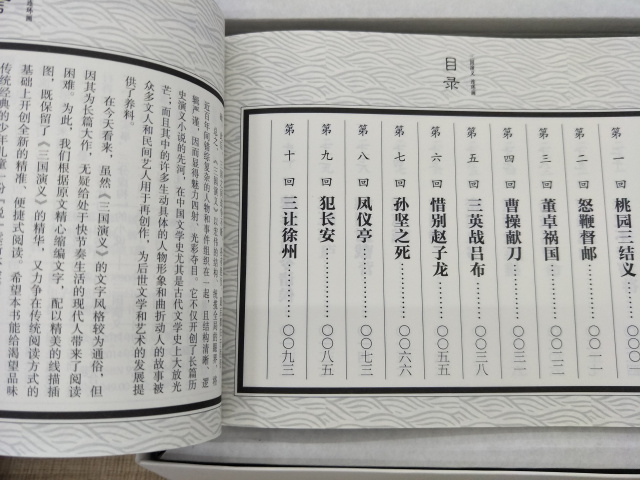 目录
第一回 桃园三结义…………〇〇〇一
第二回 怒鞭督邮…………〇一一
第三回 董卓祸国…………〇二二
第四回 曹操献刀…………〇三一
第五回 三英战吕布…………〇三八
第六回 惜别赵子龙…………〇五五
第七回 孙坚之死…………〇六六
第八回 凤仪亭…………〇七三
第九回 犯长安…………〇八五
第十回 三让徐州…………〇九三
近百年间错综复杂的人物和事件组织在一起,且结构清晰、逻
辑严谨,因而显得魅力四射、光彩夺目。它不仅开创了长篇历
史演义小说的先河,在中国文学史尤其是古代文学史上大放光
芒;而且其中的许多生动具体的人物形象和曲折动人的故事被
众多文人和民间艺人用于再创作,为后世文学和艺术的发展提
供了养料。
在今天看来,虽然《三国演义》的文字风格较为通俗,但
因其为长篇大作,无疑给处于快节奏生活的现代人带来了阅读
困难。为此,我们根据原文精心缩编文字,配以精美的线描插
图,既保留了《三国演义》的精华,又力争在传统阅读方式的
基础上开创全新的精准、便捷式阅读。希望本书能给渴望品味
传统经典的少年儿童一份
连环画